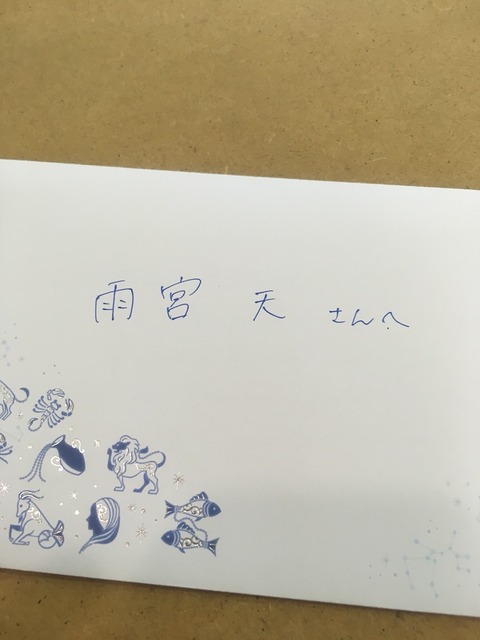 雨宮 天 さんへ